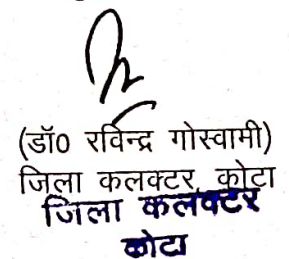 (डॉ0 रविन्द्र गोस्वामी)
जिला कलक्टर, कोटा
जिला कलक्टर
कोटा